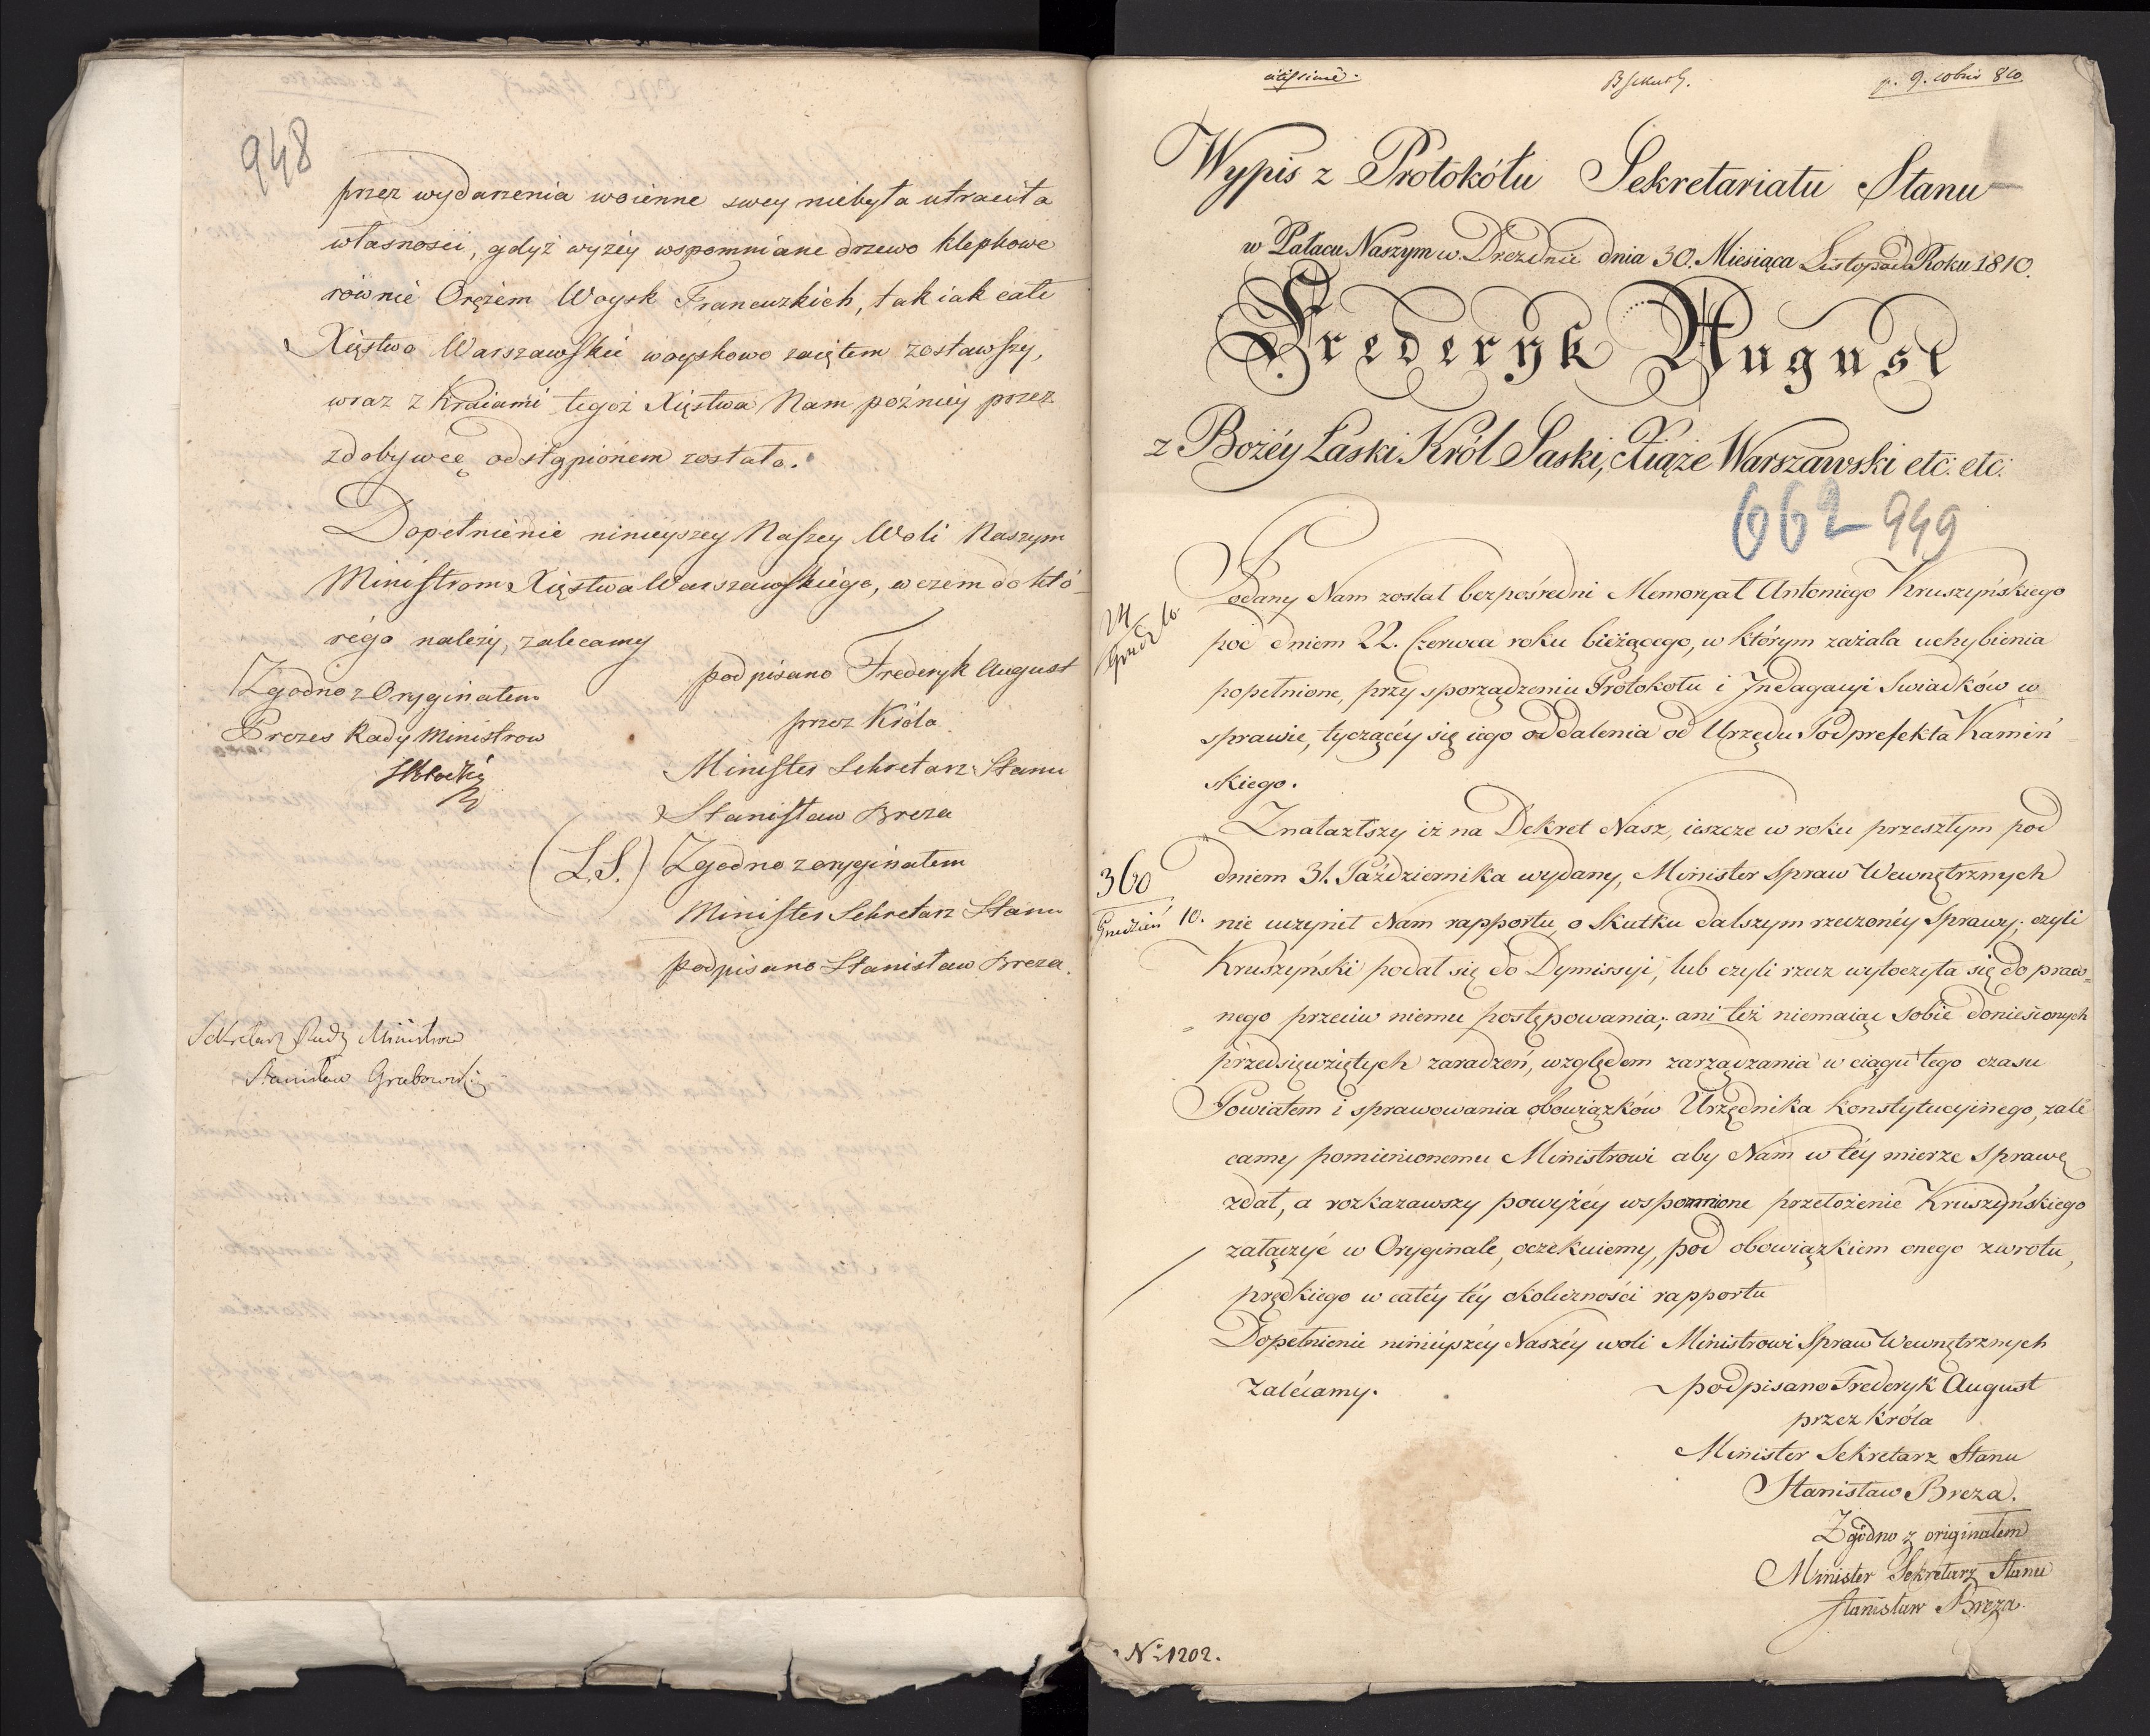 948
przez wydarzenia woienne swey niebyła utraciła
własności, gdyż wyzéy wspomniane drzewo klepkowe
równie Orężem Woysk Francuzkich, tak iak całe
Xięstwo Warszawskie woyskowo zaiętem zostawszy,
wraz z Kraiami tegoż Xięstwa Nam późniéy przez
zdobywcę odstąpionem zostało.
Dopełnienie ninieyszey Naszey Woli Naszym
Ministrom Xięstwa Warszawskiego, w czem do któ-
rego należy, zalecamy
podpisano Frederyk August
Zgodno z Oryginałem
przez Króla
Prezes Rady Ministrow
Minister Sekretarz Stanu
Stanisław Breza
(L.S.) Zgodno z oryginałem
Minister Sekretarz Stanu
podpisano Stanisław Breza.
Sekretarz Rady Ministrow
Stanisław Grabowski
p. 9. Xbris 810
Wypis z Protokółu Sekretariatu Stanu
w Pałacu Naszym w Dreznie dnia 30. Miesiąca Listopada Roku 1810.
Frederyk August
z Bożéy Łaski Król Saski, Xiąże Warszawski etc: etc:
662 949
Podany Nam został bezpośredni Memoryał Antoniego Kruszyńskiego
pod dniem 22. Czerwca roku bieżącego, w którym zażala uchybienia
popełnione, przy sporządzeniu Protokołu i Indagacyi Swiadków w
sprawie, tyczącéy się iego oddalenia od Urzędu Podprefekta Kamiń
skiego.
Znalazłszy iż na Dekret Nasz, ieszcze w roku przeszłym pod
dniem 31. Października wydany, Minister Spraw Wewnętrznych
360
Grudzień 10.
nie uczynił Nam rapportu, o skutku dalszym rzeczonéy sprawy; czyli
Kruszyński podał się do Dymissyi, lub czyli rzecz wytoczyła się do praw=
nego przeciw niemu postępowania; ani też niemaiąc sobie doniesionych
przedsięwziętych zaradzeń, względem zarządzania w ciągu tego czasu
Powiatem i sprawowania obowiązków Urzędnika Konstytucyinego, zale
camy pomienionemu Ministrowi aby Nam w téy mierze sprawę
zdał, a rozkazawszy powyżéy wspomnione przełożenie Kruszyńskiego
załączyć w Oryginale, oczekuiemy, pod obowiązkiem onego zwrotu,
prędkiego w całéy téy okoliczności rapportu
Dopełnienie ninieyszéy Naszéy woli Ministrowi Spraw Wewnętrznych
zalécamy.
podpisano Frederyk August
przez Króla
Minister Sekretarz Stanu
Stanisław Breza.
Zgodno z originałem
Minister Sekretarz Stanu
Stanisław Breza.
No 1202.